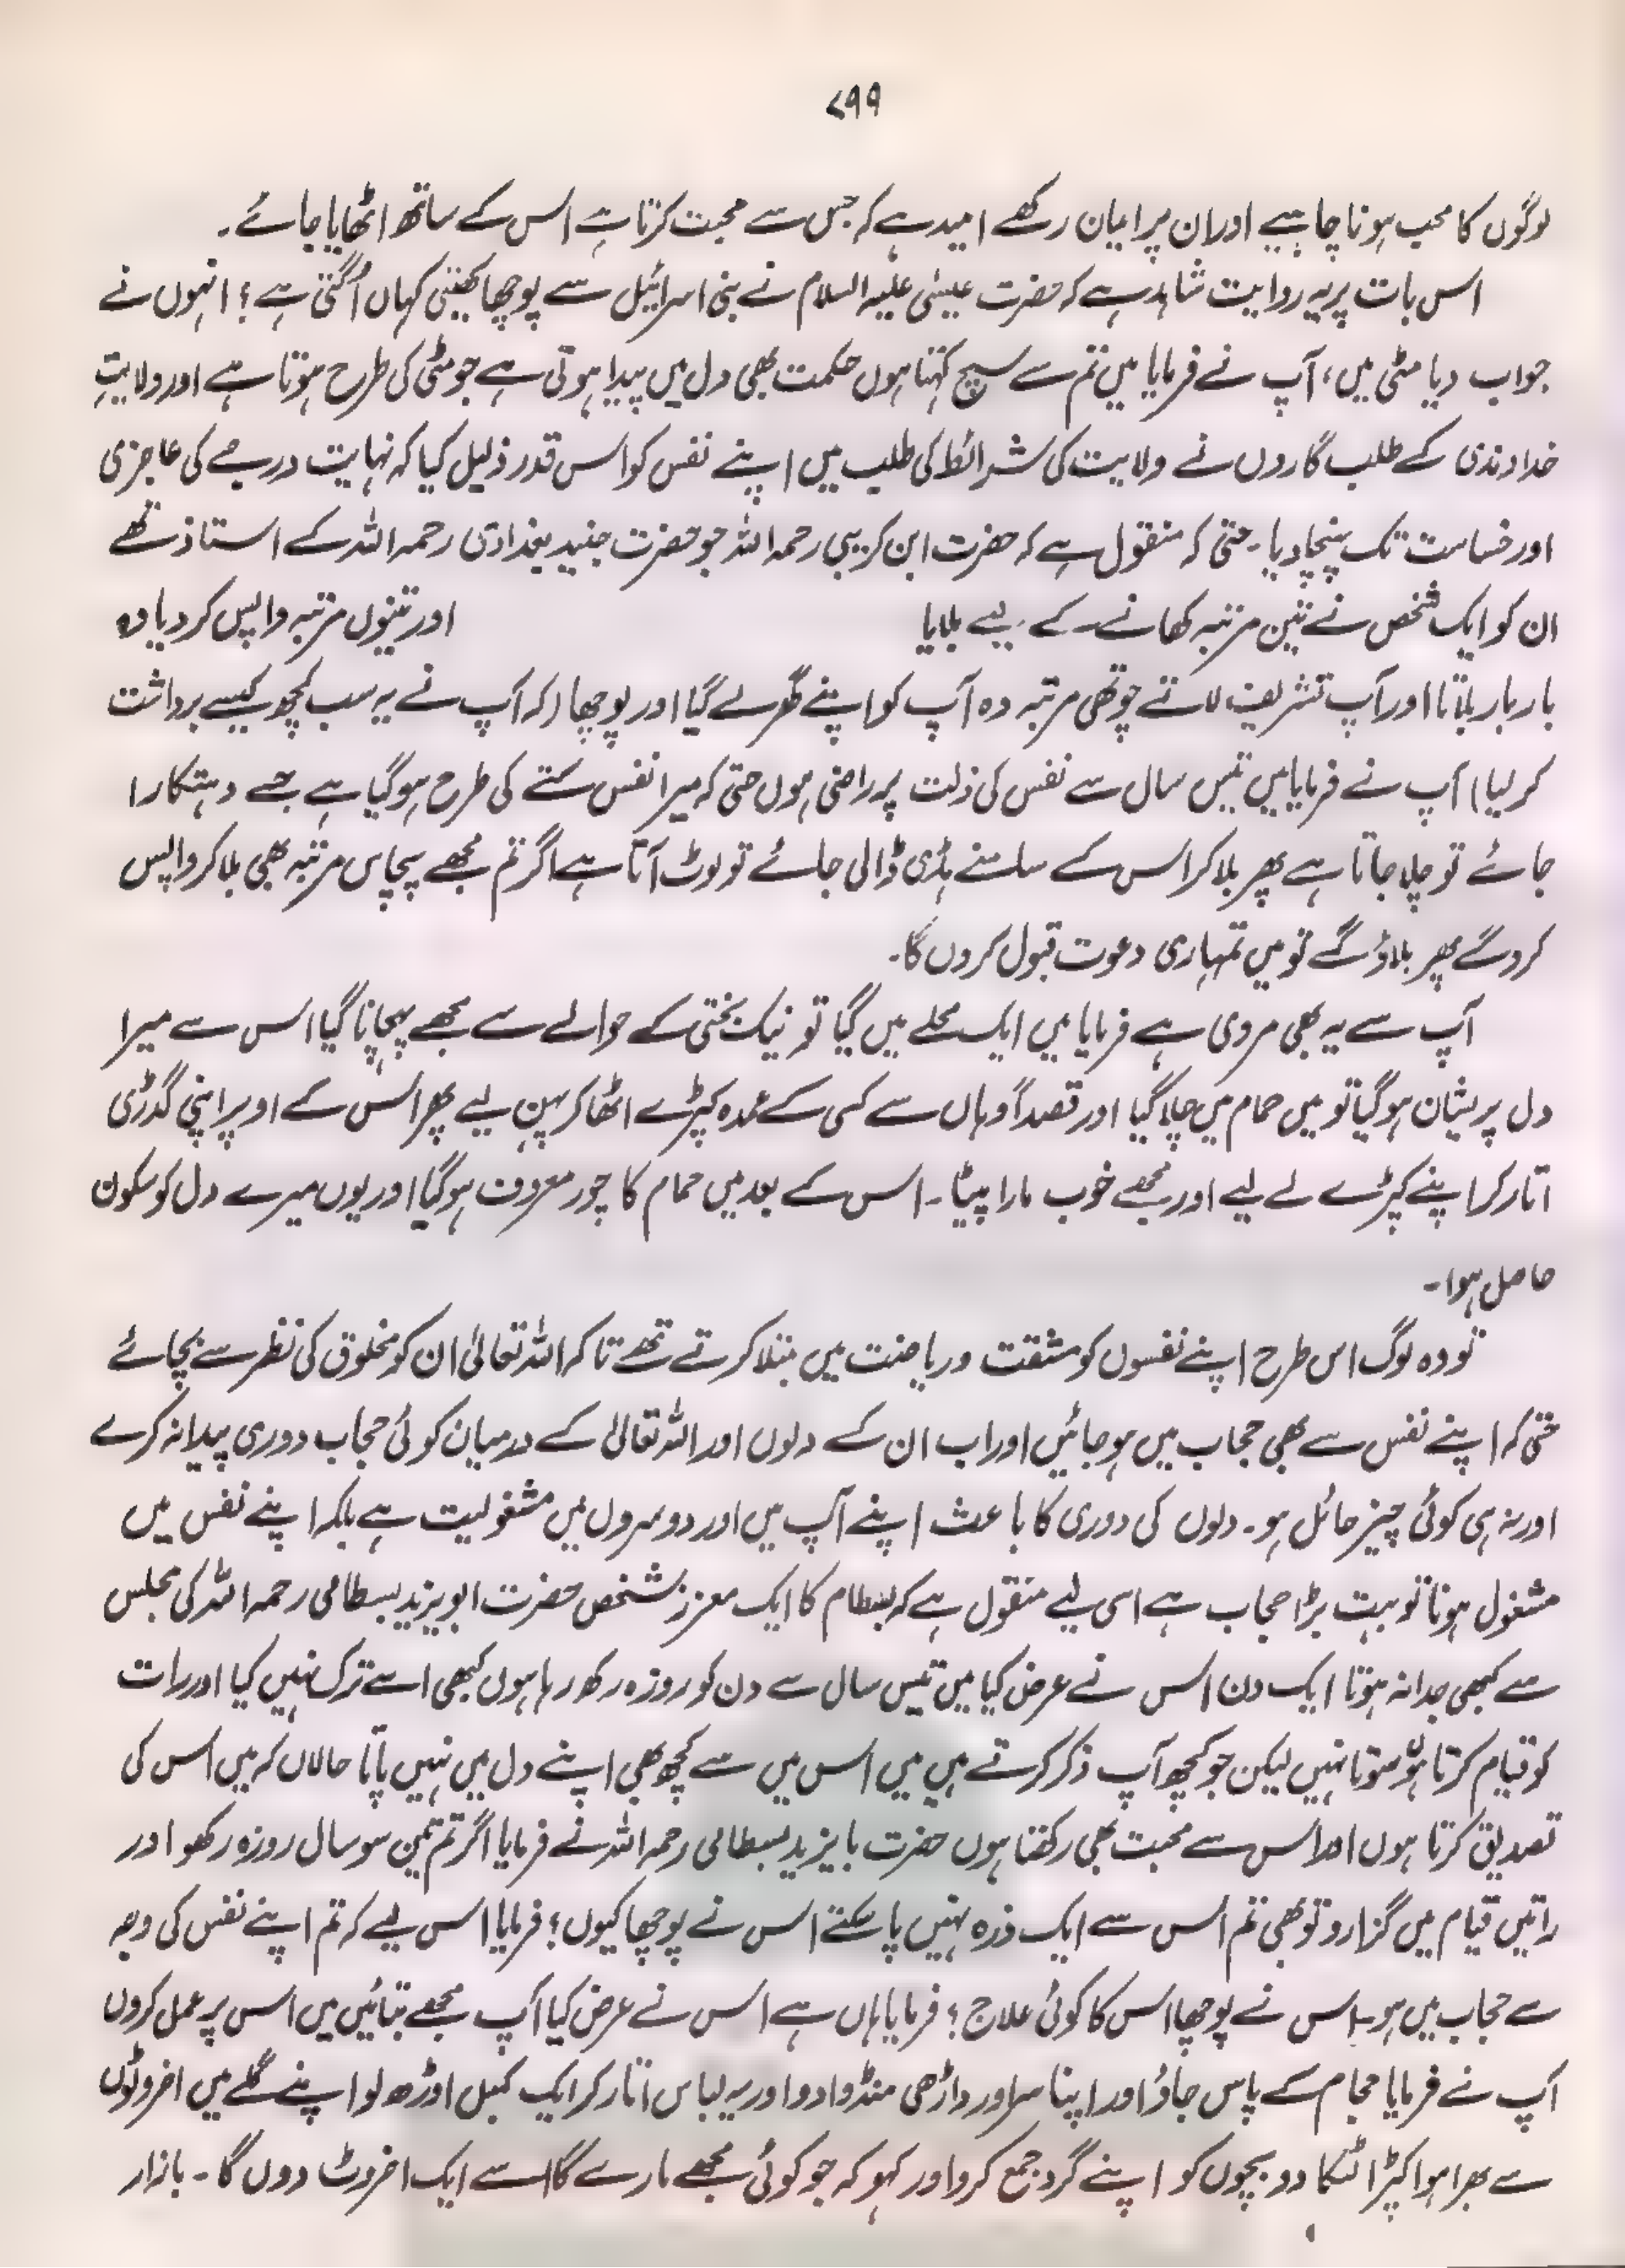 ۷۹۹
لوگوں کا محب ہونا چاہیے اور ان پر ایمان رکھے امید ہے کہ جس سے محبت کرتا ہے اس کے ساتھ اٹھایا جائے۔
اس بات پر یہ روایت شاہد ہے کہ حضرت عیسیٰ علیہ السلام نے بنی اسرائیل سے پوچھا کھیتی کہاں اُگتی ہے؟ انہوں نے
جواب دیا مٹی میں، آپ نے فرمایا میں تم سے سچ کہتا ہوں حکمت بھی دل میں پیدا ہوتی ہے جو مٹی کی طرح ہوتا ہے اور ولایتِ
خداوندی کے طلب گاروں نے ولایت کی شرائط کی طلب میں اپنے نفس کو اس قدر ذلیل کیا کہ نہایت درجے کی عاجزی
اور خساست تک پہنچا دیا۔ حتی کہ منقول ہے کہ حضرت ابن کریبی رحمہ اللہ جو حضرت جنید بغدادی رحمہ اللہ کے استاذ تھے
ان کو ایک شخص نے تین مرتبہ کھانے کے لیے بلایا اور تینوں مرتبہ واپس کر دیا وہ
بار بار بلاتا اور آپ تشریف لاتے چوتھی مرتبہ وہ آپ کو اپنے گھر لے گیا اور پوچھا (کہ آپ نے یہ سب کچھ کیسے برداشت
کر لیا) آپ نے فرمایا میں تیس سال سے نفس کی ذلت پر راضی ہوں حتی کہ میرا نفس کتے کی طرح ہو گیا ہے جسے دہتکارا
جائے تو چلا جاتا ہے پھر بلا کر اس کے سامنے ہڈی ڈالی جائے تو لوٹ آتا ہے اگر تم مجھے پچاس مرتبہ بھی بلا کر واپس
کرو گے پھر بلاؤ گے تو میں تمہاری دعوت قبول کروں گا۔
آپ سے یہ بھی مروی ہے فرمایا میں ایک محلے میں گیا تو نیک بختی کے حوالے سے مجھے پہچانا گیا اس سے میرا
دل پریشان ہو گیا تو میں حمام میں چلا گیا اور قصداً وہاں سے کسی کے عمدہ کپڑے اٹھا کر پہن لیے پھر اس کے اوپر اپنی گدڑی
اتار کر اپنے کپڑے لے لیے اور مجھے خوب مارا پیٹا۔ اس کے بعد میں حمام کا چور معروف ہو گیا اور یوں میرے دل کو سکون
حاصل ہوا۔
تو وہ لوگ اس طرح اپنے نفسوں کو مشقت و ریاضت میں مبتلا کرتے تھے تاکہ اللہ تعالیٰ ان کو مخلوق کی نظر سے بچائے
حتی کہ اپنے نفس سے بھی حجاب میں ہو جائیں اور اب ان کے دلوں اور اللہ تعالیٰ کے درمیان کوئی حجاب دوری پیدا نہ کرے
اور نہ ہی کوئی چیز حائل ہو۔ دلوں کی دوری کا باعث اپنے آپ میں اور دوسروں میں مشغولیت ہے بلکہ اپنے نفس میں
مشغول ہونا تو بہت بڑا حجاب ہے اسی لیے منقول ہے کہ بسطام کا ایک معزز شخص حضرت ابو یزید بسطامی رحمہ اللہ کی مجلس
سے کبھی جدا نہ ہوتا ایک دن اس نے عرض کیا میں تیس سال سے دن کو روزہ رکھ رہا ہوں کبھی اسے ترک نہیں کیا اور رات
کو قیام کرتا ہوں سوتا نہیں لیکن جو کچھ آپ ذکر کرتے ہیں میں اس میں سے کچھ بھی اپنے دل میں نہیں پاتا حالاں کہ میں اس کی
تصدیق کرتا ہوں اور اس سے محبت بھی رکھتا ہوں حضرت بایزید بسطامی رحمہ اللہ نے فرمایا اگر تم تین سو سال روزہ رکھو اور
راتیں قیام میں گزارو تو بھی تم اس سے ایک ذرہ نہیں پا سکتے اس نے پوچھا کیوں؟ فرمایا اس لیے کہ تم اپنے نفس کی وجہ
سے حجاب میں ہو۔ اس نے پوچھا اس کا کوئی علاج؟ فرمایا ہاں ہے اس نے عرض کیا آپ مجھے بتائیں میں اس پر عمل کروں
آپ نے فرمایا حجام کے پاس جاؤ اور اپنا سر اور داڑھی منڈوا دو اور یہ لباس اتار کر ایک کمبل اوڑھ لو اپنے گلے میں اخروٹوں
سے بھرا ہوا کپڑا لٹکا دو بچوں کو اپنے گرد جمع کرو اور کہو کہ جو کوئی مجھے مارے گا اسے ایک اخروٹ دوں گا۔ بازار